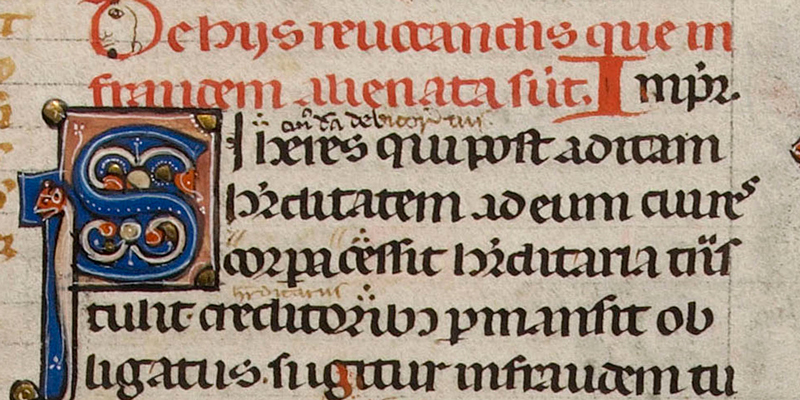 De hijs reuocandis que in
fraudem alienata sūt. Imꝑr.
Si heres qui post aditam
hr̄ditatem ad eum cui res
cor pacēssit hr̄ditaria trās
tulit creditoribꝫ ꝑmansit ob
ligatus. si igitur in fraudem tu